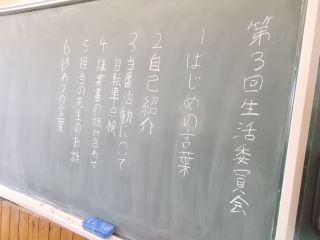 第3回生活委員会
1はじめの言葉
2自己紹介
3当番活動について
自転車点検
4議案書の話し合わせ
5担当の先生のお話
6終わりの言葉